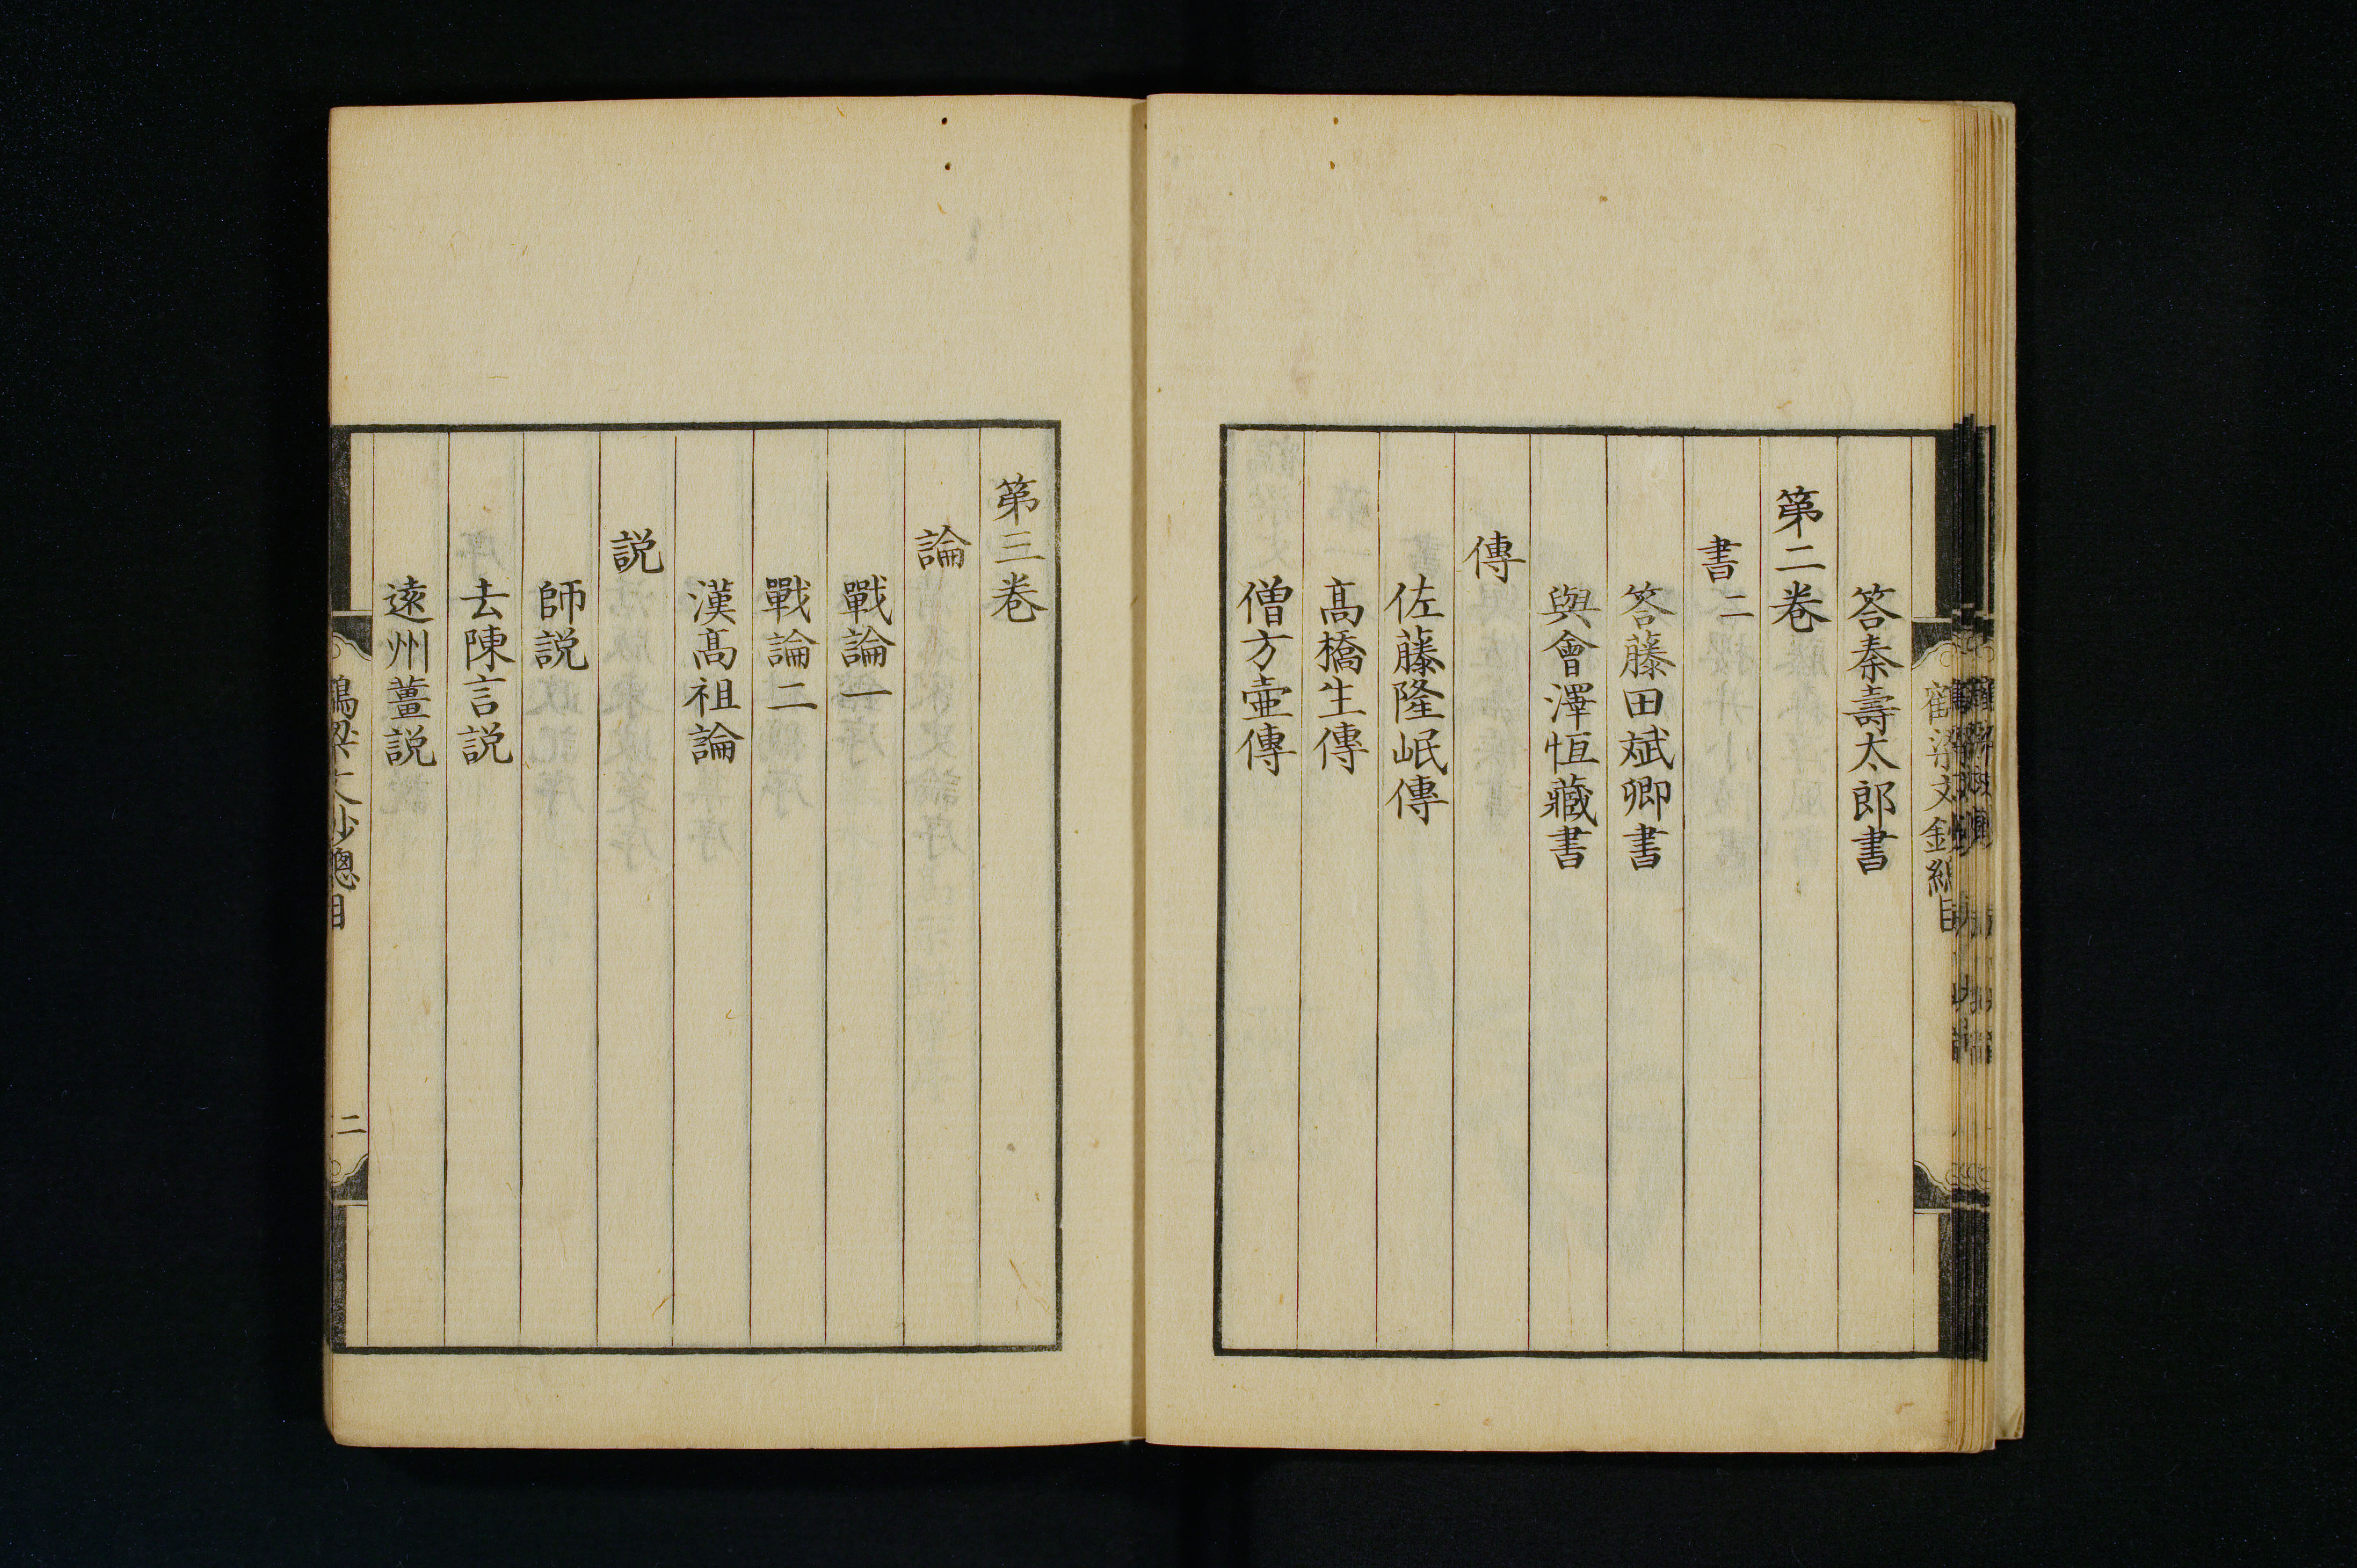 鶴梁文鈔總目
答秦壽太郎書
第二卷
書二
答藤田斌卿書
與會澤恒藏書
傳
佐藤隆岷傳
髙橋生傳
僧方壷傳
第三卷
論
戰論一
戰論二
漢髙祖論
説
師説
去陳言説
遠州薑説
鶴梁文鈔總目
二